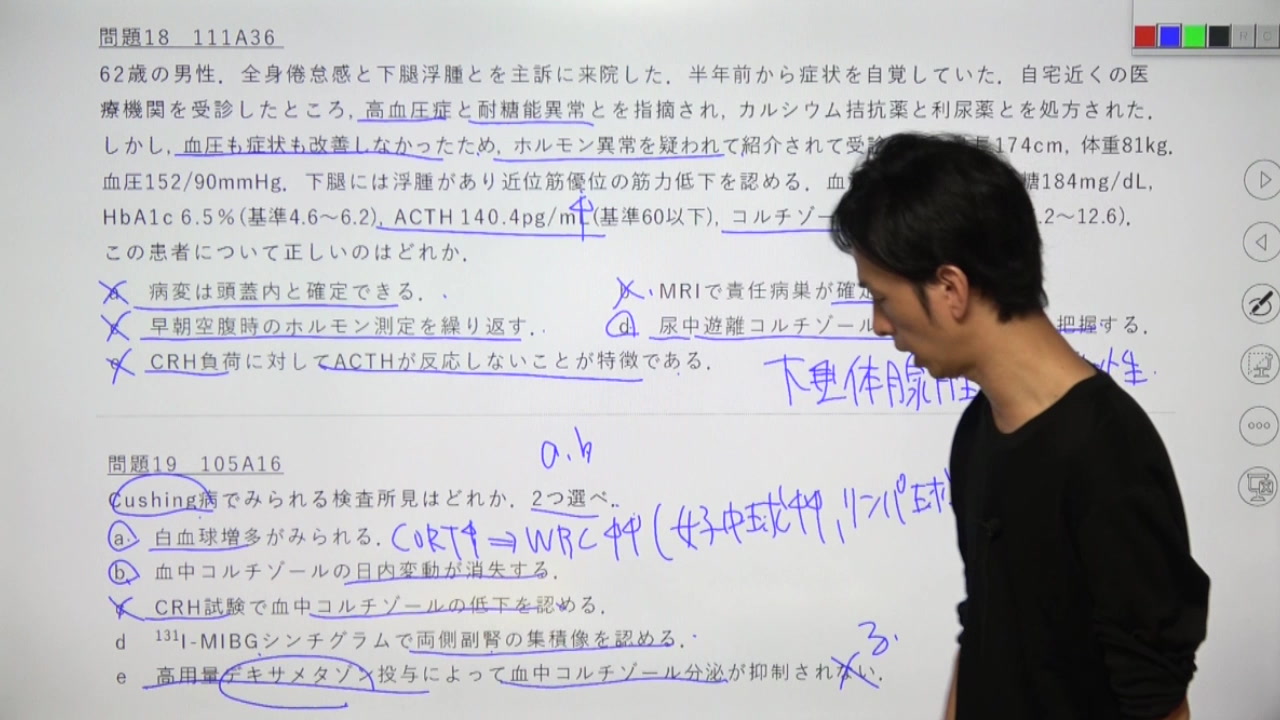 問題18 111A36
62歳の男性．全身倦怠感と下腿浮腫とを主訴に来院した．半年前から症状を自覚していた．自宅近くの医
療機関を受診したところ, 高血圧症と耐糖能異常とを指摘され, カルシウム拮抗薬と利尿薬とを処方された．
しかし, 血圧も症状も改善しなかったため, ホルモン異常を疑われて紹介されて受診 174cm, 体重81kg.
血圧152/90mmHg. 下腿には浮腫があり近位筋優位の筋力低下を認める．血 糖184mg/dL,
HbA1c 6.5%(基準4.6〜6.2), ACTH 140.4pg/mL(基準60以下), コルチゾー .2〜12.6).
この患者について正しいのはどれか.
a 病変は頭蓋内と確定できる． b MRIで責任病巣が確定
c 早朝空腹時のホルモン測定を繰り返す． d 尿中遊離コルチゾール 把握する．
e CRH負荷に対してACTHが反応しないことが特徴である．
下垂体腺腫 性
a.b
問題19 105A16
Cushing病でみられる検査所見はどれか．2つ選べ．
a. 白血球増多がみられる. CORT↑⇒WBC↑↑(好中球↑↑,リンパ球
b 血中コルチゾールの日内変動が消失する．
c CRH試験で血中コルチゾールの低下を認める．
d ¹³¹I-MIBGシンチグラムで両側副腎の集積像を認める．
る.
e 高用量デキサメタゾン投与によって血中コルチゾール分泌が抑制されない．